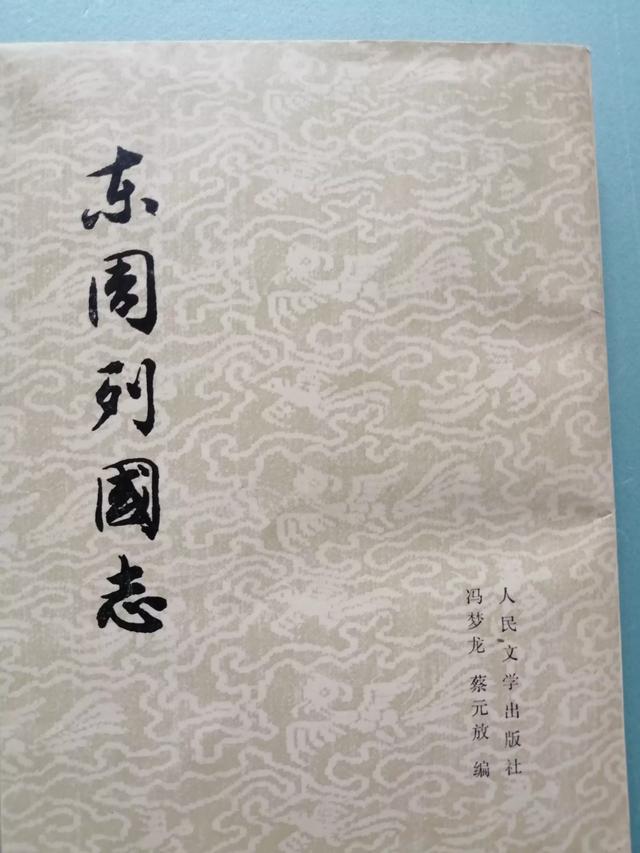 东周列國志
冯梦龙 蔡元放 编
人民文学出版社